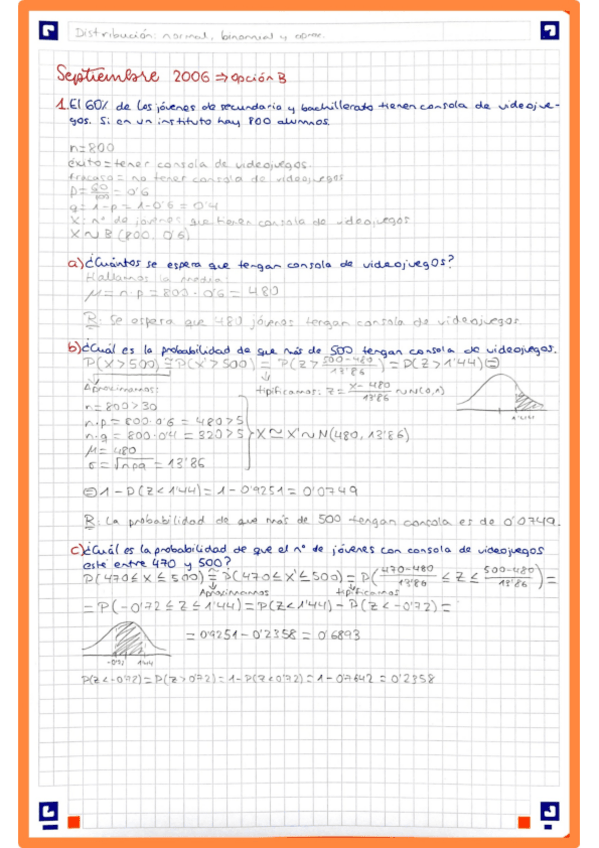 Distribución: normal, binomial y aprox.
Septiembre 2006 ⇒ Opción B
1. El 60% de los jóvenes de secundaria y bachillerato tienen consola de videojue-
gos. Si en un instituto hay 800 alumnos.
n=800
éxito = tener consola de videojuegos.
fracaso = no tener consola de videojuegos
p = 60/100 = 0'6
q = 1-p = 1-0'6 = 0'4
X: nº de jóvenes que tienen consola de videojuegos
X ~ B (800, 0'6)
a) ¿Cuántos se espera que tengan consola de videojuegos?
Hallamos la media:
μ = n·p = 800·0'6 = 480
R: Se espera que 480 jóvenes tengan consola de videojuegos
b) ¿Cuál es la probabilidad de que más de 500 tengan consola de videojuegos.
P(X>500) ≅ P(X'>500) = P(Z > 500-480/13'86) = P(Z>1'44) =
Aproximamos: tipificamos: Z = X-480/13'86 ~ N(0,1)
1'44
n = 800 > 30
n·p = 800·0'6 = 480 > 5
n·q = 800·0'4 = 320 > 5 X ≃ X' ~ N(480, 13'86)
μ = 480
σ = √npq = 13'86
= 1 - P(Z < 1'44) = 1 - 0'9251 = 0'0749
R: La probabilidad de que más de 500 tengan consola es de 0'0749.
c) ¿Cuál es la probabilidad de que el nº de jóvenes con consola de videojuegos
esté entre 470 y 500?
P(470 ≤ X ≤ 500) ≅ P(470 ≤ X' ≤ 500) = P(470-480/13'86 ≤ Z ≤ 500-480/13'86) =
Aproximamos tipificamos
= P(-0'72 ≤ Z ≤ 1'44) = P(Z < 1'44) - P(Z < -0'72) =
= 0'9251 - 0'2358 = 0'6893
-0'72 1'44
P(Z < -0'72) = P(Z > 0'72) = 1 - P(Z < 0'72) = 1 - 0'7642 = 0'2358